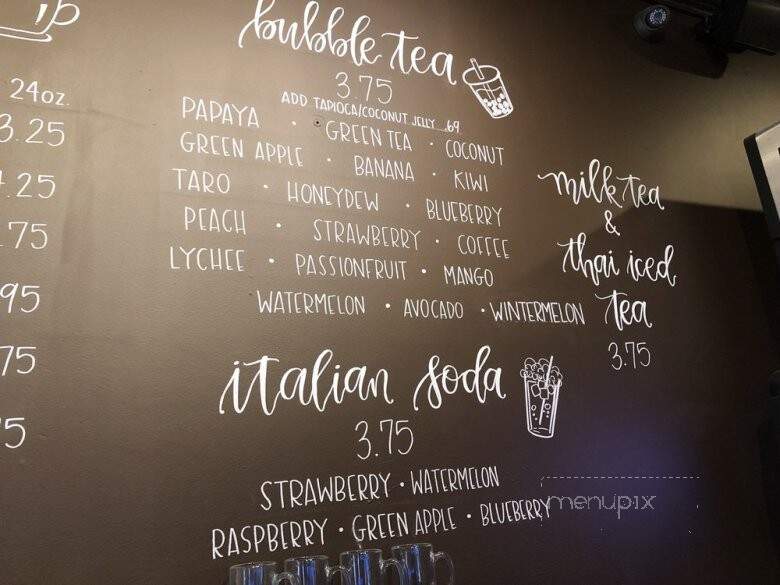 24oz.
3.25
.25
.75
95
75
5
bubble tea
3.75
ADD TAPIOCA/COCONUT JELLY .69
PAPAYA · GREEN TEA · COCONUT
GREEN APPLE · BANANA · KIWI
TARO · HONEYDEW · BLUEBERRY
PEACH · STRAWBERRY · COFFEE
LYCHEE · PASSIONFRUIT · MANGO
WATERMELON · AVOCADO · WINTERMELON
milk tea
&
thai iced
tea
3.75
italian soda
3.75
STRAWBERRY · WATERMELON
RASPBERRY · GREEN APPLE · BLUEBERRY
menupix